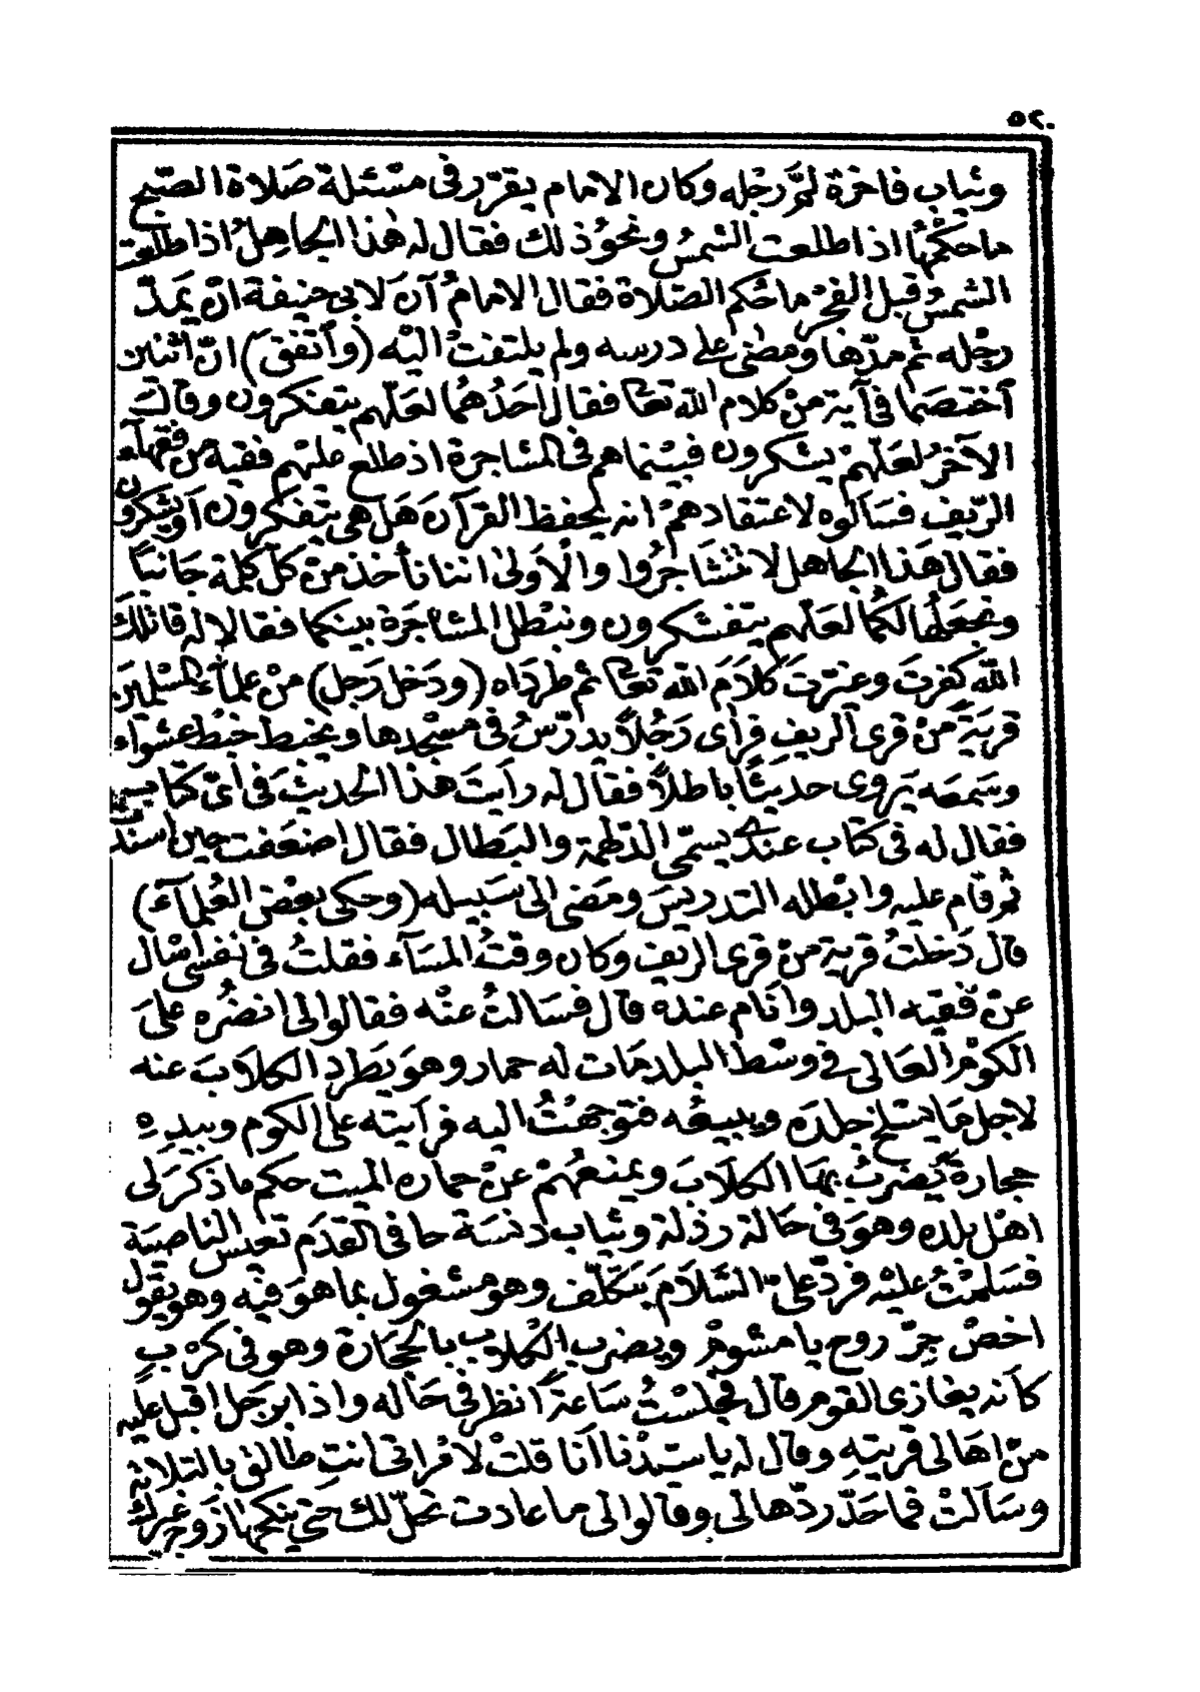 ٥٢٠
وثياب فاخرة لمّ رجله وكان الامام يقرّر فى مسئلة صلاة الصّبح
ما حكمها اذا طلعت الشمس ونحو ذلك فقال له هذا الجاهل اذا طلعت
الشمس قبل الفجر ما حكم الصّلاة فقال الامام آن لابى حنيفة انّ يمدّ
رجله ثم مدّها ومضى على درسه ولم يلتفت اليه (وأتفق) انّ اثنين
أختصما فى آية من كلام الله تعالى فقال احدهما لعلّهم يتفكرون وقال
الآخر لعلّهم يشكرون فبينما هم فى المشاجرة اذ طلع عليهم فقيه من فقهآء
الرّيف فسألوه لاعتقادهم انه يحفظ القرآن هل هى يتفكرون أو يشكرون
فقال هذا الجاهل لا تتشاجروا والأولى اننا نأخذ من كلّ كلمة جانبًا
ونجعلها لكما لعلّهم يتفشكرون ونبطل المشاجرة بينكما فقالا له قاتلك
الله كفرت وغيّرت كلام الله تعالى ثم طرداه (ودخل رجل) من علمآء المسلمين
قرية من قرى الريف فرأى رجلاً يدرّس فى مسجدها ويخبط خبط عشوآء
وسمعه يروى حديثًا باطلاً فقال له رأيت هذا الحديث فى أىّ كتاب
فقال له فى كتاب عندى يسمّى الدّظمة والبطال فقال اضعفت حين اسندت
ثم قام عليه وابطله التدريس ومضى الى سبيله (وحكى بعض العلمآء)
قال دخلت قرية من قرى الريف وكان وقت المسآء فقلت فى نفسى اسأل
عن فقيه البلد وانام عنده قال فسألت عنه فقالوا لى انضره على
الكوم العالى فى وسط البلد مات له حمار وهو يطرد الكلاب عنه
لاجل ما يسلخ جلده ويبيعه فتوجهت اليه فرأيته على الكوم وبيده
حجارة يضرب بها الكلاب ويمنعهم عن حماره الميت حكم ما ذكر لى
اهل بلده وهو فى حالة رذلة وثياب دنسة حافى القدم تعيس الناصية
فسلمت عليه فردّ علىّ السّلام بتكلّف وهو مشغول بما هو فيه وهو يقول
اخص جرّ روح يا مشوم ويضرب الكلاب بالحجارة وهو فى كرب
كأنه يغازى القوم قال فجلست ساعة أنظر فى حاله واذا برجل اقبل عليه
من اهالى قريته وقال له يا سيدنا أنا قلت لامراتى انت طالق بالتلاته
وسآلت فما حدّ ردّها لى وقالوا لى ما عادت تحلّ لك حتى ينكحها زوج غيرك